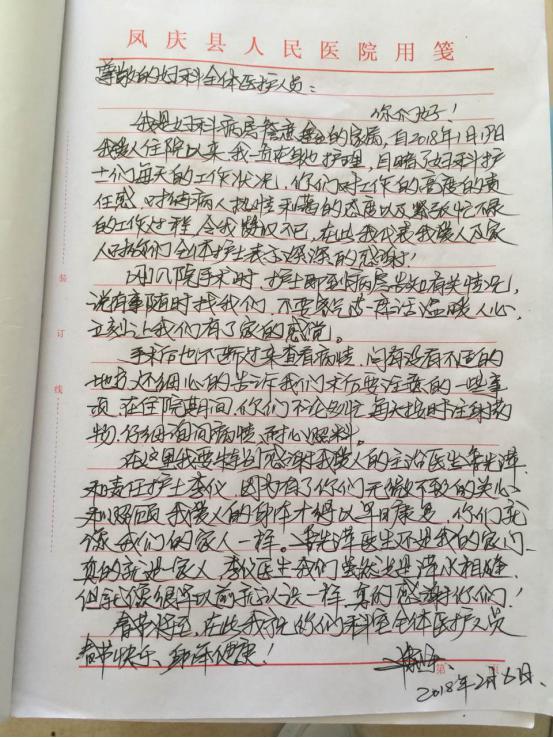 凤庆县人民医院用笺
尊敬的妇科全体医护人员：
你们好！
我是妇科病房 的家属，自2018年1月 日
我爱人住院以来，我一直在 护理，目睹了妇科护
士们每天的工作状况，你们对工作的高度的责
任感，对待病人热情和蔼的态度以及紧张忙碌
的工作过程，令我 不已，在此我代表我爱人及家
人 你们全体护士表示深深的感谢！
入院手术时，护士即到病房告知有关情况，
说有事随时找我们，不要客气 一席话温暖人心，
立刻让我们有了家的感觉。
手术后也不断过来查看病情，问有没有不适的
地方，还细心的告诉我们术后要注意的一些事
项，在住院期间，你们不论多忙，每天按时注射药
物，仔细询问病情、耐心照料。
在这里我要特别感谢我爱人的主治医生 萍
和责任护士李仪，因为有了你们无微不致的关心
和照顾，我爱人的身体才得以早日康复，你们就
像我们的家人一样。 萍医生还是我的家门，
真的就是家人，李仪医生我们虽然是萍水相逢，
但就像很早以前就认识一样，真的感谢你们！
春节将至，在此我祝你们科室全体医护人员
春节快乐、身体健康！
2018年2月6日.
装
订
线
第
页